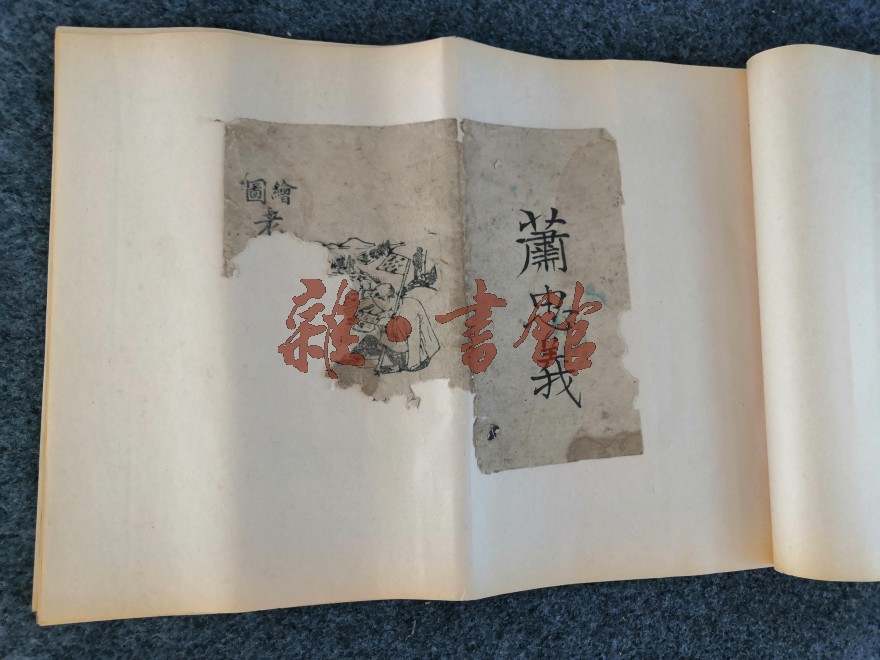 蕭忠義
繪圖
雜·書館